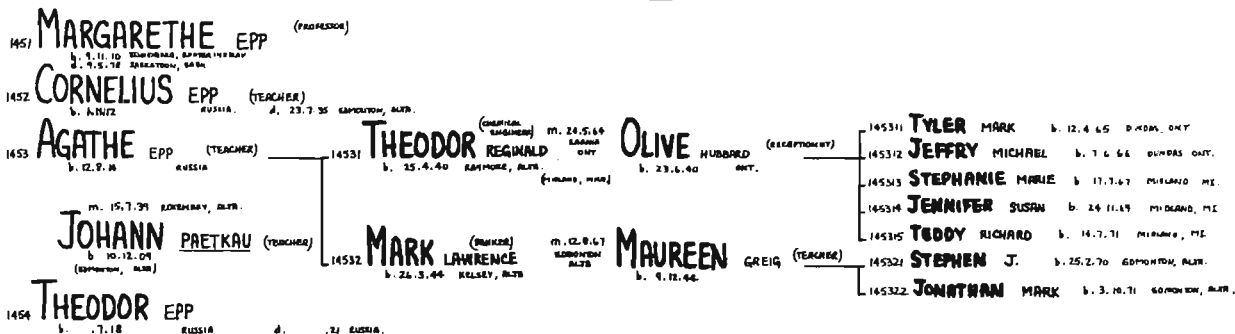 1451 MARGARETHE EPP (PROFESSOR)
b. 9.11.10
d. 9.5.78 SASKATOON, SASK
1452 CORNELIUS EPP (TEACHER)
b. RUSSIA. d. 23.7.35 EDMONTON, ALTA.
1453 AGATHE EPP (TEACHER)
b. 12.8.14 RUSSIA
m. 15.7.39 ROSEMARY, ALTA.
JOHANN PAETKAU (TEACHER)
b 10.12.09
(EDMONTON, ALTA)
1454 THEODOR EPP
b. .7.18 RUSSIA d. .21 RUSSIA.
14531 THEODOR REGINALD (CHEMICAL ENGINEER)
b. 25.4.40 ALTA.
(MIDLAND, MICH)
m. 24.5.64 SARNIA ONT
OLIVE HUBBARD (RECEPTIONIST)
b. 23.6.40 ONT.
14532 MARK LAWRENCE (BANKER)
b. 26.3.44 KELSEY, ALTA
m. 12.8.67 EDMONTON ALTA
MAUREEN GREIG (TEACHER)
b. 9.12.44
145311 TYLER MARK b. 12.4.65 DUNDAS, ONT
145312 JEFFRY MICHAEL b. 7.6.66 DUNDAS ONT.
145313 STEPHANIE MARIE b 17.7.67 MIDLAND MI.
145314 JENNIFER SUSAN b. 24.11.69 MIDLAND, MI
145315 TEDDY RICHARD b. 14.7.71 MIDLAND, MI
145321 STEPHEN J. b. 25.2.70 EDMONTON, ALTA.
145322 JONATHAN MARK b. 3.10.71 EDMONTON, ALTA.